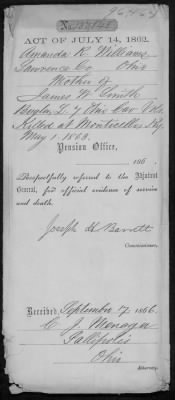 96,464
ACT OF JULY 14, 1862.
Amanda R. Williams
Lawrence Co, Ohio
Mother of
James W. Smith
Bugler, L, 7 Ohio Cav Vols.
Killed at Monticello, Ky,
May 1. 1863.
Pension Office,
186 .
Respectfully referred to the Adjutant
General, for official evidence of service
and death.
Joseph H Barrett
Commissioner.
Received, September 7, 1866.
C. J. Menager
Gallipolis
Ohio
Attorney.